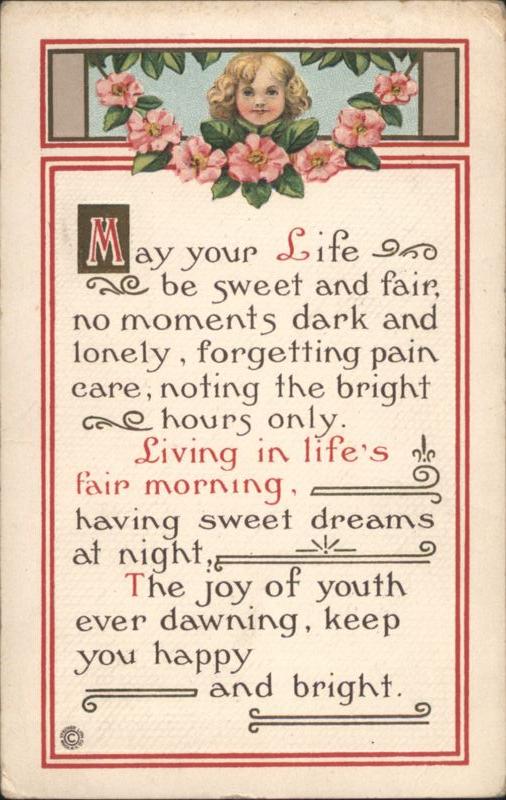 May your Life
be sweet and fair,
no moments dark and
lonely, forgetting pain
care, noting the bright
hours only.
Living in life's
fair morning,
having sweet dreams
at night,
The joy of youth
ever dawning, keep
you happy
and bright.
©